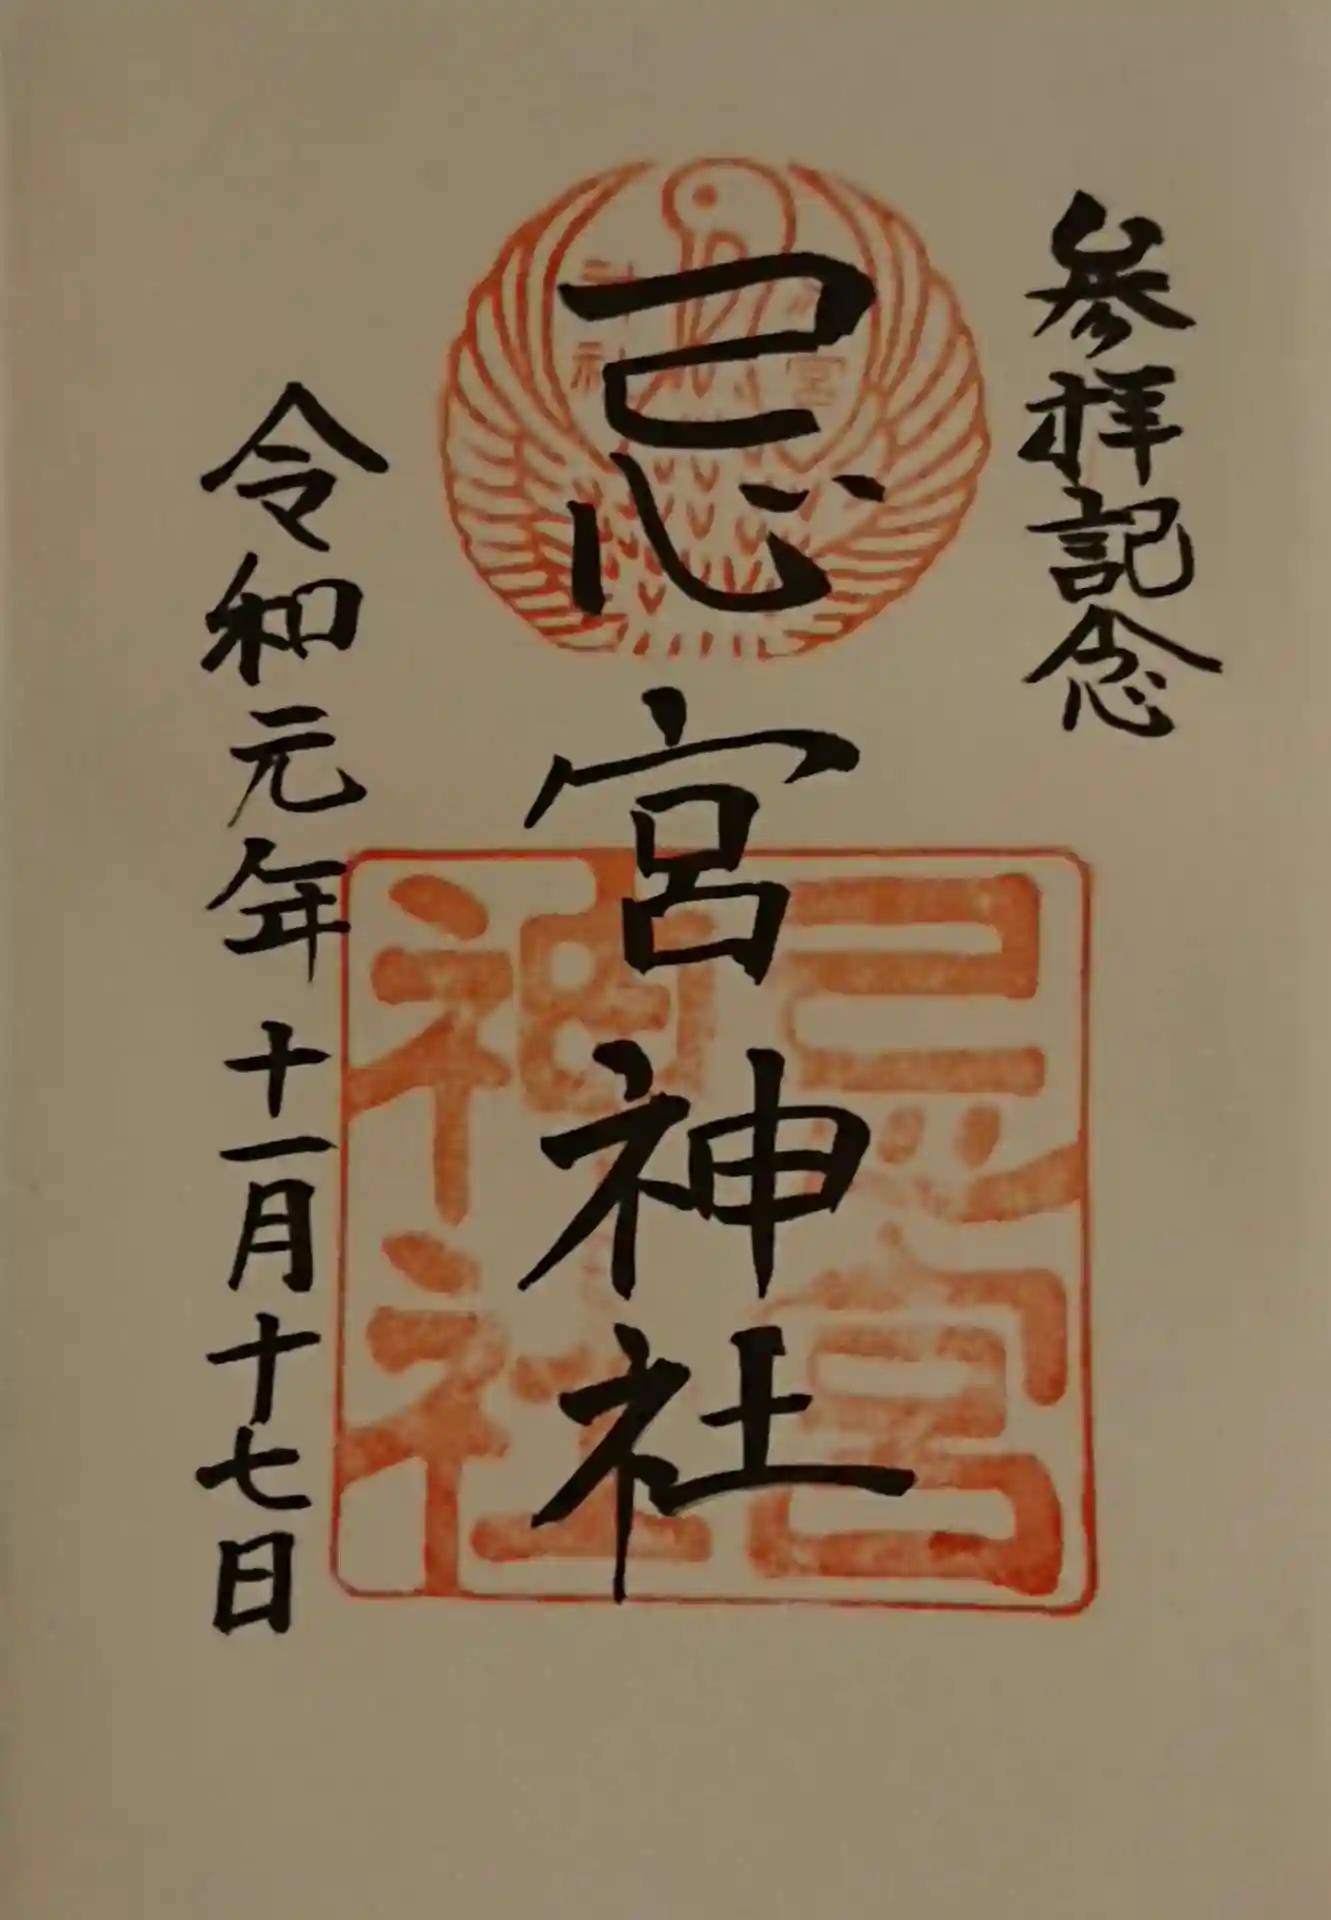 参拝記念
忌宮神社
令和元年十一月十七日
忌宮
神社
宮
神社